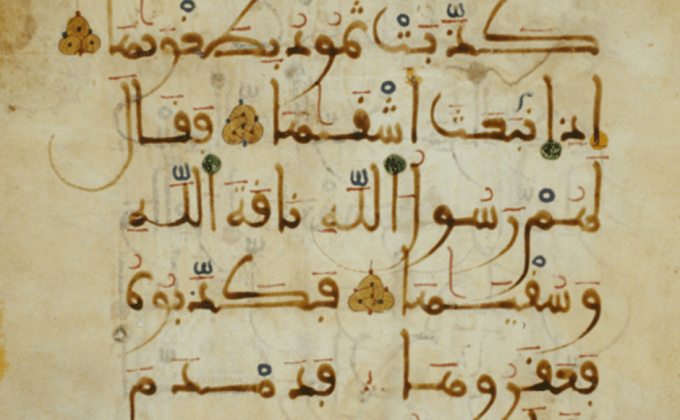 كذّبت ثمود بطغويها
إذ انبعث أشقيها فقال
لهم رسول اللّه ناقة اللّه
وسقيها فكذّبوه
فعقروها فدمدم